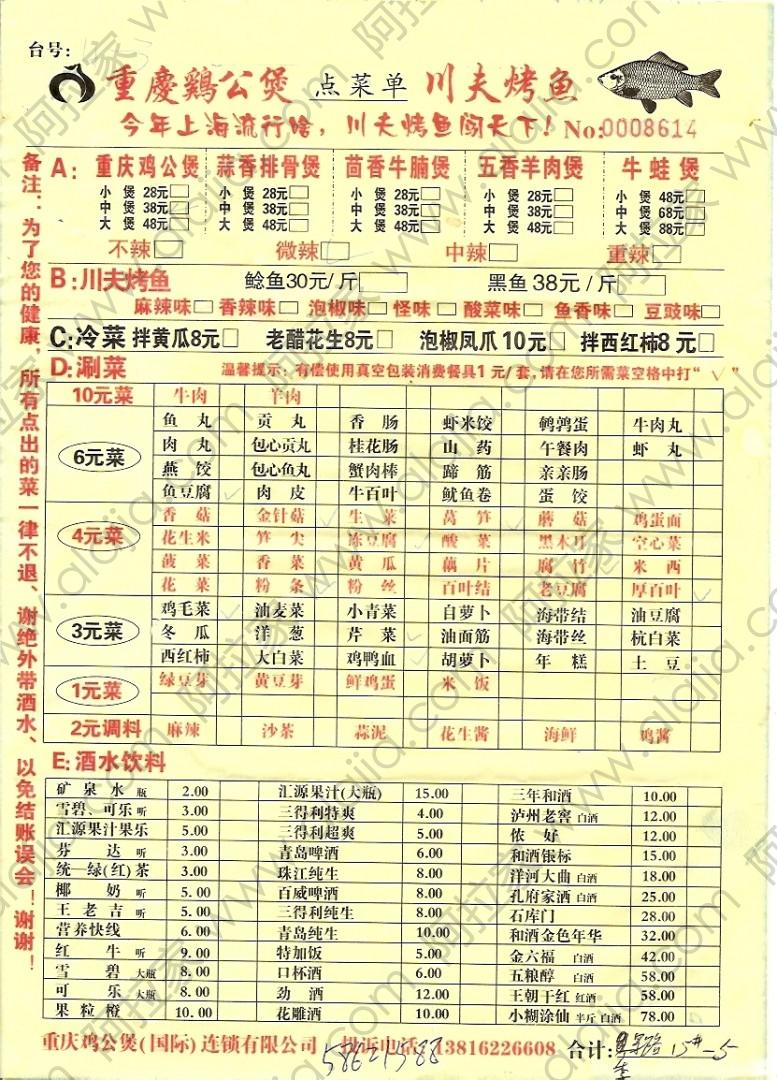 台号:
重慶鷄公煲 点菜单 川夫烤鱼
今年上海流行啥，川夫烤鱼闯天下! No:0008614
备注：为了您的健康，所有点出的菜一律不退、谢绝外带酒水、以免结账误会！谢谢！
A: 重庆鸡公煲 蒜香排骨煲 茴香牛腩煲 五香羊肉煲 牛蛙煲
小煲 28元 小煲 28元 小煲 28元 小煲 28元 小煲 48元
中煲 38元 中煲 38元 中煲 38元 中煲 38元 中煲 68元
大煲 48元 大煲 48元 大煲 48元 大煲 48元 大煲 88元
不辣 微辣 中辣 重辣
B:川夫烤鱼 鲶鱼30元/斤 黑鱼38元/斤
麻辣味 香辣味 泡椒味 怪味 酸菜味 鱼香味 豆豉味
C:冷菜 拌黄瓜8元 老醋花生8元 泡椒凤爪10元 拌西红柿8元
D:涮菜 温馨提示：有偿使用真空包装消费餐具1元/套,请在您所需菜空格中打"√"
10元菜 牛肉 羊肉
6元菜
鱼丸 贡丸 香肠 虾米饺 鹌鹑蛋 牛肉丸
肉丸 包心贡丸 桂花肠 山药 午餐肉 虾丸
燕饺 包心鱼丸 蟹肉棒 蹄筋 亲亲肠
鱼豆腐 肉皮 牛百叶 鱿鱼卷 蛋饺
4元菜
香菇 金针菇 生菜 莴笋 蘑菇 鸡蛋面
花生米 笋尖 冻豆腐 酸菜 黑木耳 空心菜
菠菜 香菜 黄瓜 藕片 腐竹 米西
花菜 粉条 粉丝 百叶结 老豆腐 厚百叶
3元菜
鸡毛菜 油麦菜 小青菜 白萝卜 海带结 油豆腐
冬瓜 洋葱 芹菜 油面筋 海带丝 杭白菜
西红柿 大白菜 鸡鸭血 胡萝卜 年糕 土豆
1元菜
绿豆芽 黄豆芽 鲜鸡蛋 米饭
2元调料 麻辣 沙茶 蒜泥 花生酱 海鲜 鸡酱
E:酒水饮料
矿泉水 瓶 2.00 汇源果汁(大瓶) 15.00 三年和酒 10.00
雪碧、可乐 听 3.00 三得利特爽 4.00 泸州老窖 白酒 12.00
汇源果汁果乐 5.00 三得利超爽 5.00 侬好 12.00
芬达 听 3.00 青岛啤酒 6.00 和酒银标 15.00
统一绿(红)茶 3.00 珠江纯生 8.00 洋河大曲 白酒 18.00
椰奶 听 5.00 百威啤酒 8.00 孔府家酒 白酒 25.00
王老吉 听 5.00 三得利纯生 8.00 石库门 28.00
营养快线 6.00 青岛纯生 10.00 和酒金色年华 32.00
红牛 听 9.00 特加饭 5.00 金六福 白酒 42.00
雪碧 大瓶 8.00 口杯酒 6.00 五粮醇 白酒 58.00
可乐 大瓶 8.00 劲酒 12.00 王朝干红 红酒 58.00
果粒橙 10.00 花雕酒 10.00 小糊涂仙 半斤 白酒 78.00
重庆鸡公煲(国际)连锁有限公司 投诉电话 13816226608 合计:
58621588
阿拉家 www.alajia.com